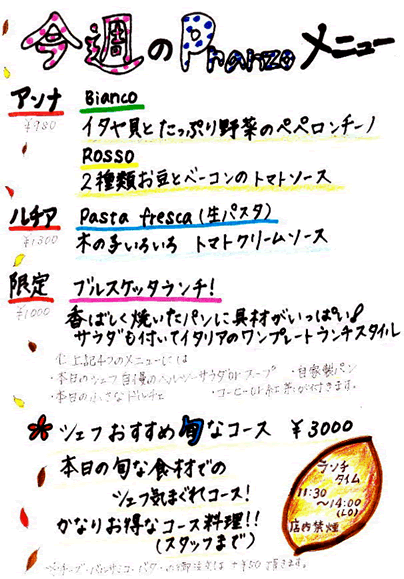 今週のPranzoメニュー
アンナ Bianco
¥980 イタヤ貝とたっぷり野菜のペペロンチーノ
Rosso
2種類お豆とベーコンのトマトソース
ルチア Pasta fresca (生パスタ)
¥1300 木の子いろいろ トマトクリームソース
限定 ブルスケッタランチ!
¥1000 香ばしく焼いたパンに具材がいっぱい♪
サラダも付いてイタリアのワンプレートランチスタイル
上記4つのメニューには
・本日のシェフ自慢のヘルシーサラダorスープ ・自家製パン
・本日の小さなドルチェ ・コーヒーor紅茶が付きます。
シェフおすすめ旬なコース ¥3000
本日の旬な食材での
シェフ気まぐれコース!
かなりお得なコース料理!!
(スタッフまで)
ランチ
タイム
11:30
〜14:00
(LO)
店内禁煙